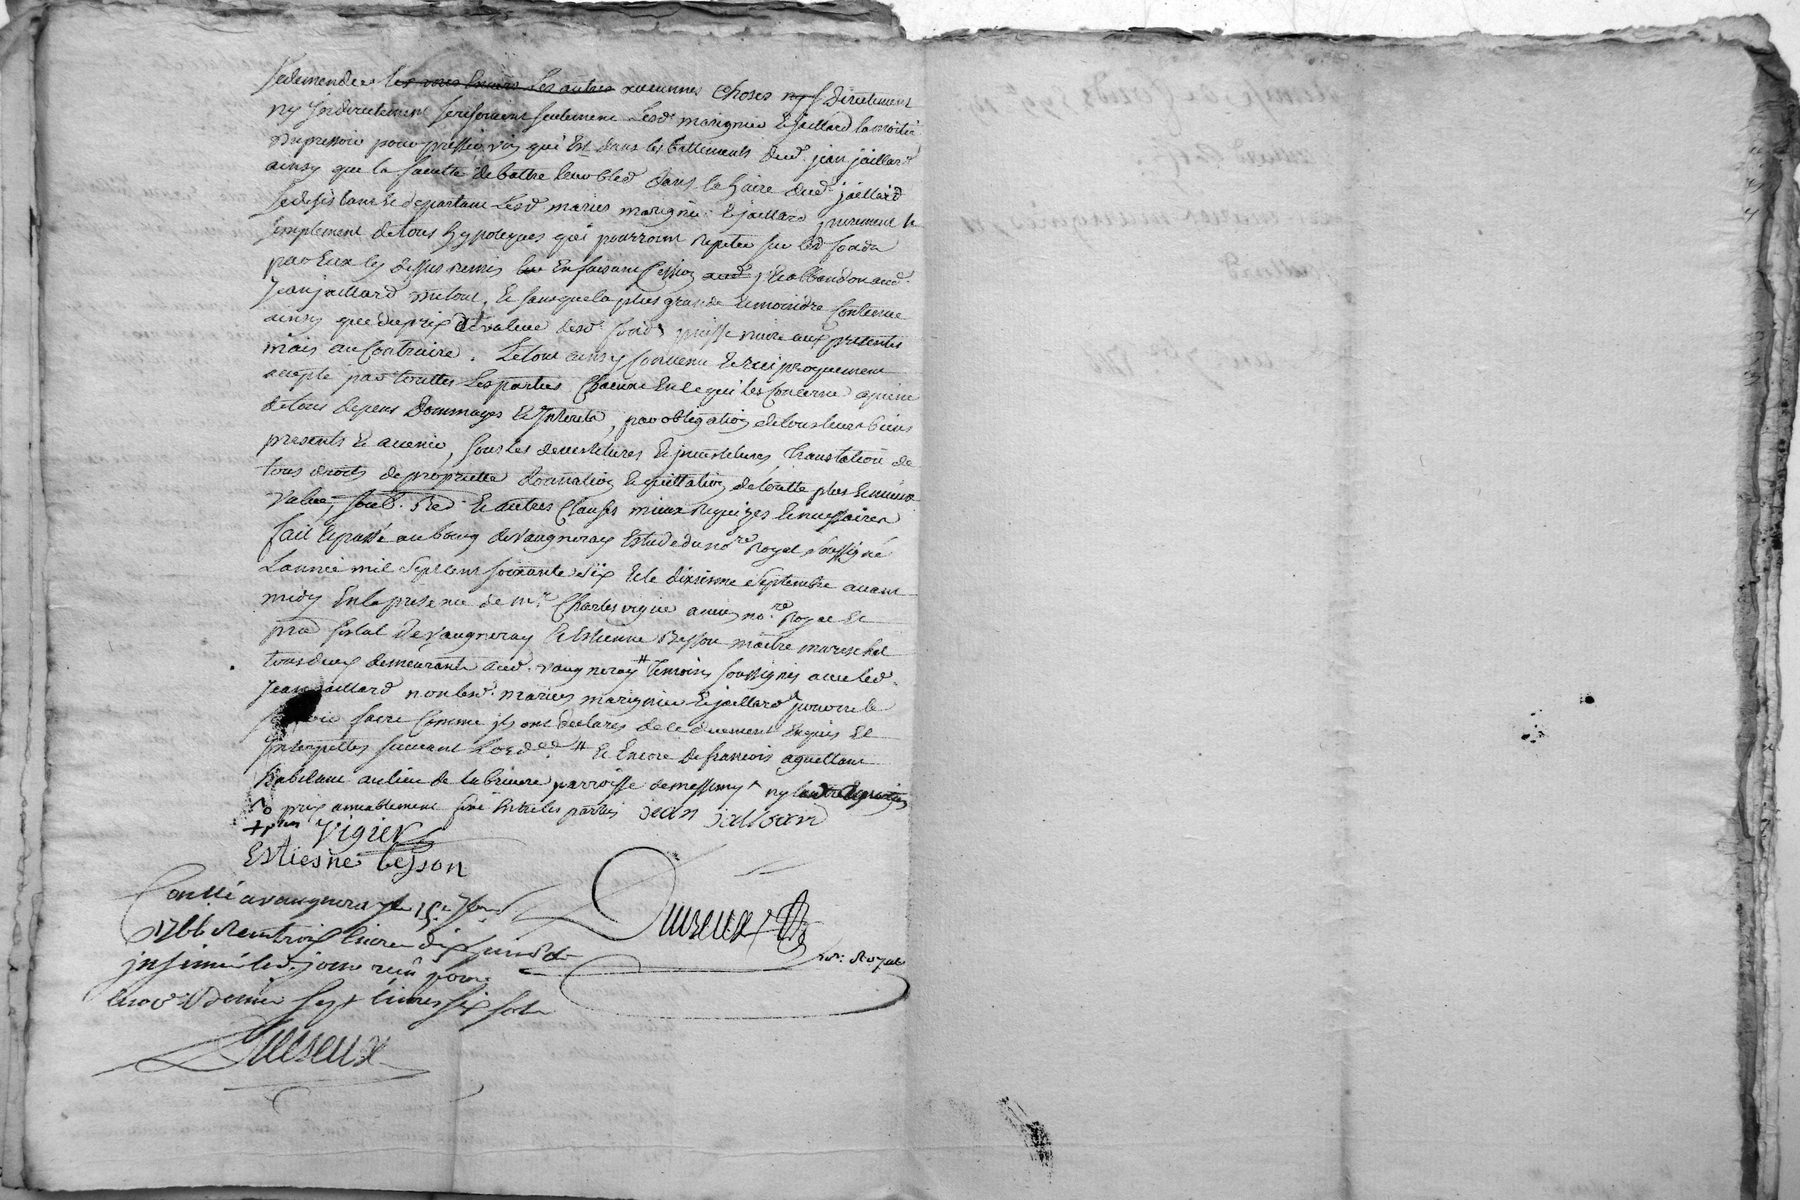 se demender les uns envers les autres aucunnes choses ny directement
ny indirectement se reservent seulement lesd. marignier & jaillard la moitié
du pressoir pour pressér vin qui est dans les battiments dud. jean jaillard
ainsy que la faculte de battre leur bled dans le haire dud. jaillard
se desistant & departant lesd. mariés marignier & jaillard purement &
simplement de tous hypoteques qui pourront repeter sur lesd. fonds
par eux cy dessus remis en faisant cession & abbandon aud.
jean jaillard du tout, & sans que la plus grande & moindre contenue
ainsy que du prix & valeur desd. fonds puisse nuire aux presentes
mais au contraire. Le tout ainsy convenu & reciproquement
accepté par touttes les parties chacune en ce qui les concerne a peine
de tous depens dommages & interets, par obligation de tous leurs biens
presents & avenir, sous les devestitures & investitures translation de
tous droits de propriette donnation & quittation de toutte plus & moins
value, & autres clauses mieux requises & necessaires
fait & passé au bourg de Vaugneray etude du no.re royal soussigné
L'année mil sept cent soixante six & le dixieme septembre avant
midy en la presence de m.e Charles vigier ancien no.re royal &
pro.r fiscal de Vaugneray & Estienne Besson maître mareschal
tous deux demeurants aud. vaugneray # temoins soussignés avec led.
jean jaillard non lesd. mariés marignier & jaillard pour ne le
sçavoir faire comme ils ont declarés de ce duement enquis &
interpellés suivant l'ord.ce # & encore de francois aguettant
habitant au lieu de la bruiere parroisse de messimy ny
prix amiablement fixé entre les parties jean jallard
Vigier
Estiesne besson
Con.llé a vaugneray le 15.e 7bre
1766 Reçu trois livres dix
insinué led. jour reçu pour
sept livres six sols
Duiseux
Duiseux
No.re Royal